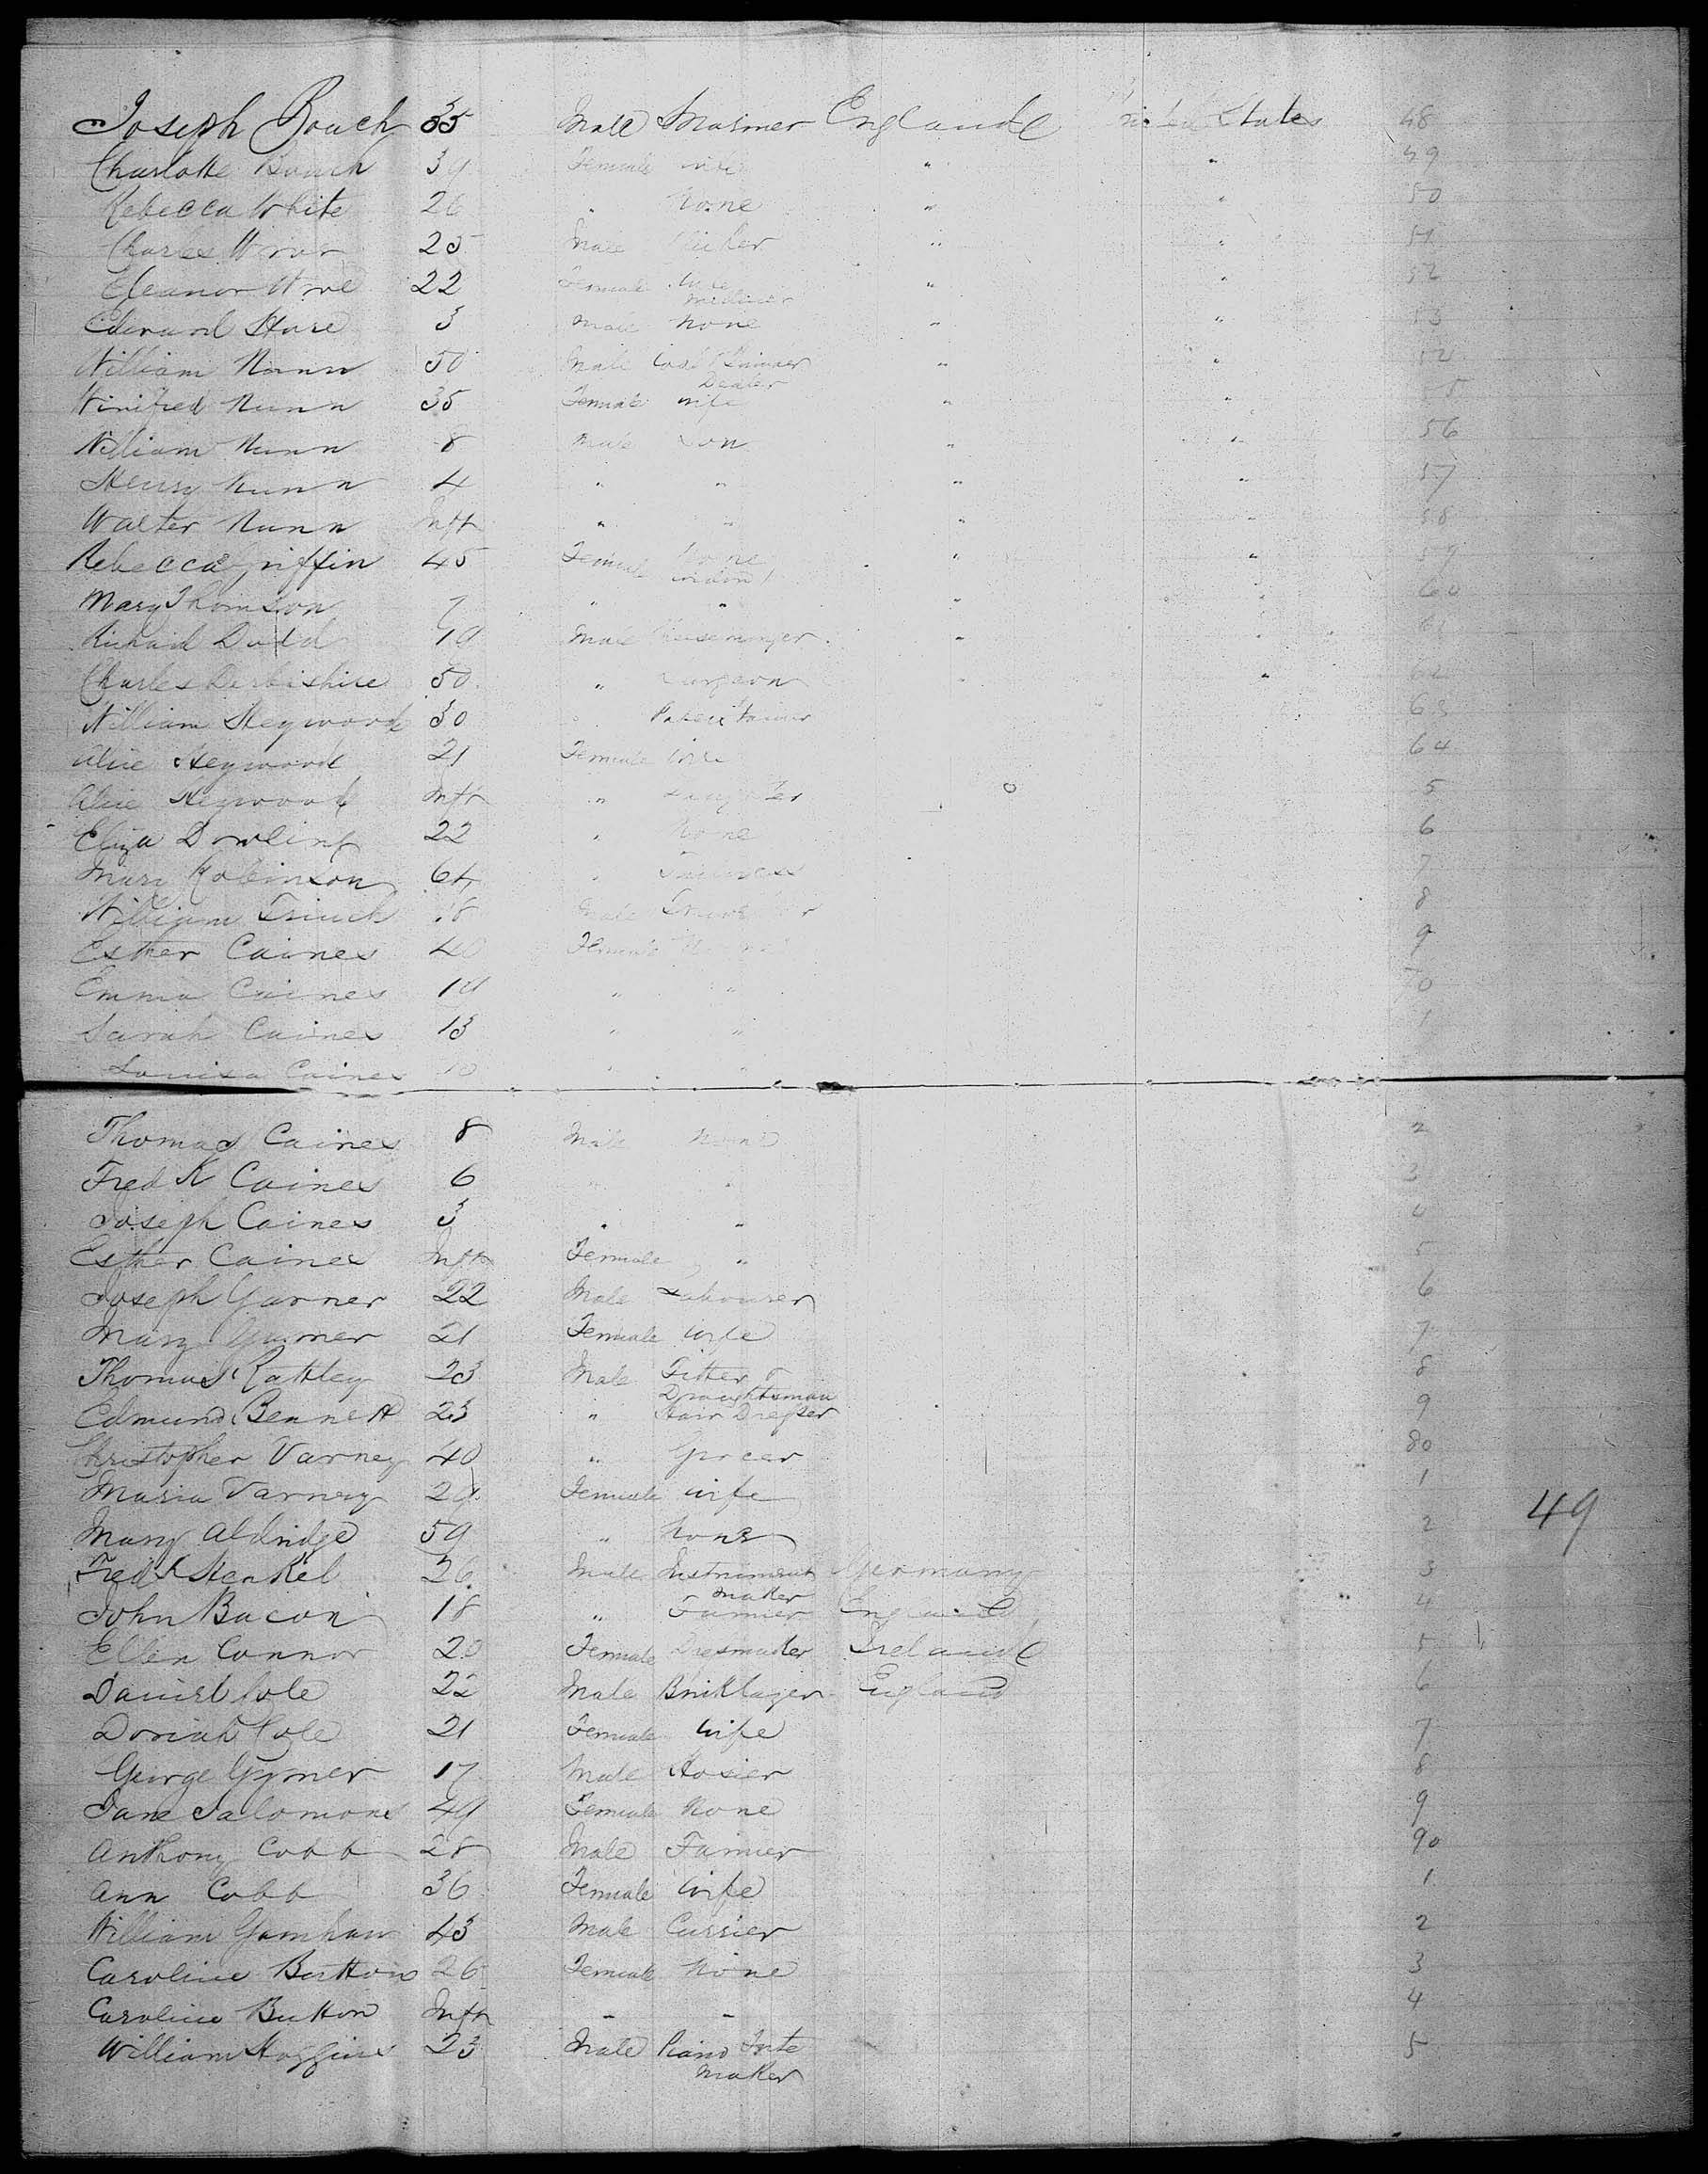 Joseph Bouch 35 Male Mariner England United States 48
Charlotte Bouch 39 Female wife " " 49
Rebecca White 26 " None " " 50
Charles 25 Male " " 51
Eleanor 22 Female wife " " 52
Milliner
Edward Hare 3 Male None " " 53
William Nunn 50 Male Coal " " 54
Dealer
Winifred Nunn 35 Female wife " " 55
William Nunn 8 Male Son " " 56
Henry Nunn 4 " " " " 57
Walter Nunn Inft " " " " 58
Rebecca Griffin 45 Female None " " 59
widow
Mary Thomson 7 " " " " 60
Richard Dodd 19 Male Cheesemonger " " 61
Charles Derbishire 50 " Surgeon " " 62
William Heywood 30 " 63
Alice Heywood 21 Female wife 64
Alice Heywood Inft " Daughter 5
Eliza Dowling 22 " None 6
Mary Robinson 64 " 7
William 18 Male 8
Esther Caines 40 Female None 9
Emma Caines 19 " " 70
Sarah Caines 13 " " 1
Louisa Caines 10 " "
Thomas Caines 8 Male None 2
Fred K Caines 6 " " 3
Joseph Caines 3 " " 4
Esther Caines Inft Female " 5
Joseph Garner 22 Male Labourer 6
Mary Garner 21 Female wife 7
Thomas Rattley 23 Male Fitter & 8
Draughtsman
Edmund Bennett 23 " Hair Dresser 9
Christopher Varney 40 " Grocer 80
Maria Varney 29 Female wife 1
Mary Aldridge 59 " None 2 49
Fredk Henkel 26 Male Instrument Germany 3
maker
John Bacon 18 " Farmer England 4
Ellen Connor 20 Female Dresmaker Ireland 5
Daniel Cole 22 Male Briklayer England 6
Doriah Cole 21 Female wife 7
George Gymer 17 Male Hosier 8
Jane Salomons 49 Female None 9
Anthony Cobb 28 Male Farmer 90
Ann Cobb 36 Female wife 1
William 43 Male Currier 2
Caroline Button 26 Female None 3
Caroline Button Inft " " 4
William Huggins 23 Male Piano Forte 5
maker